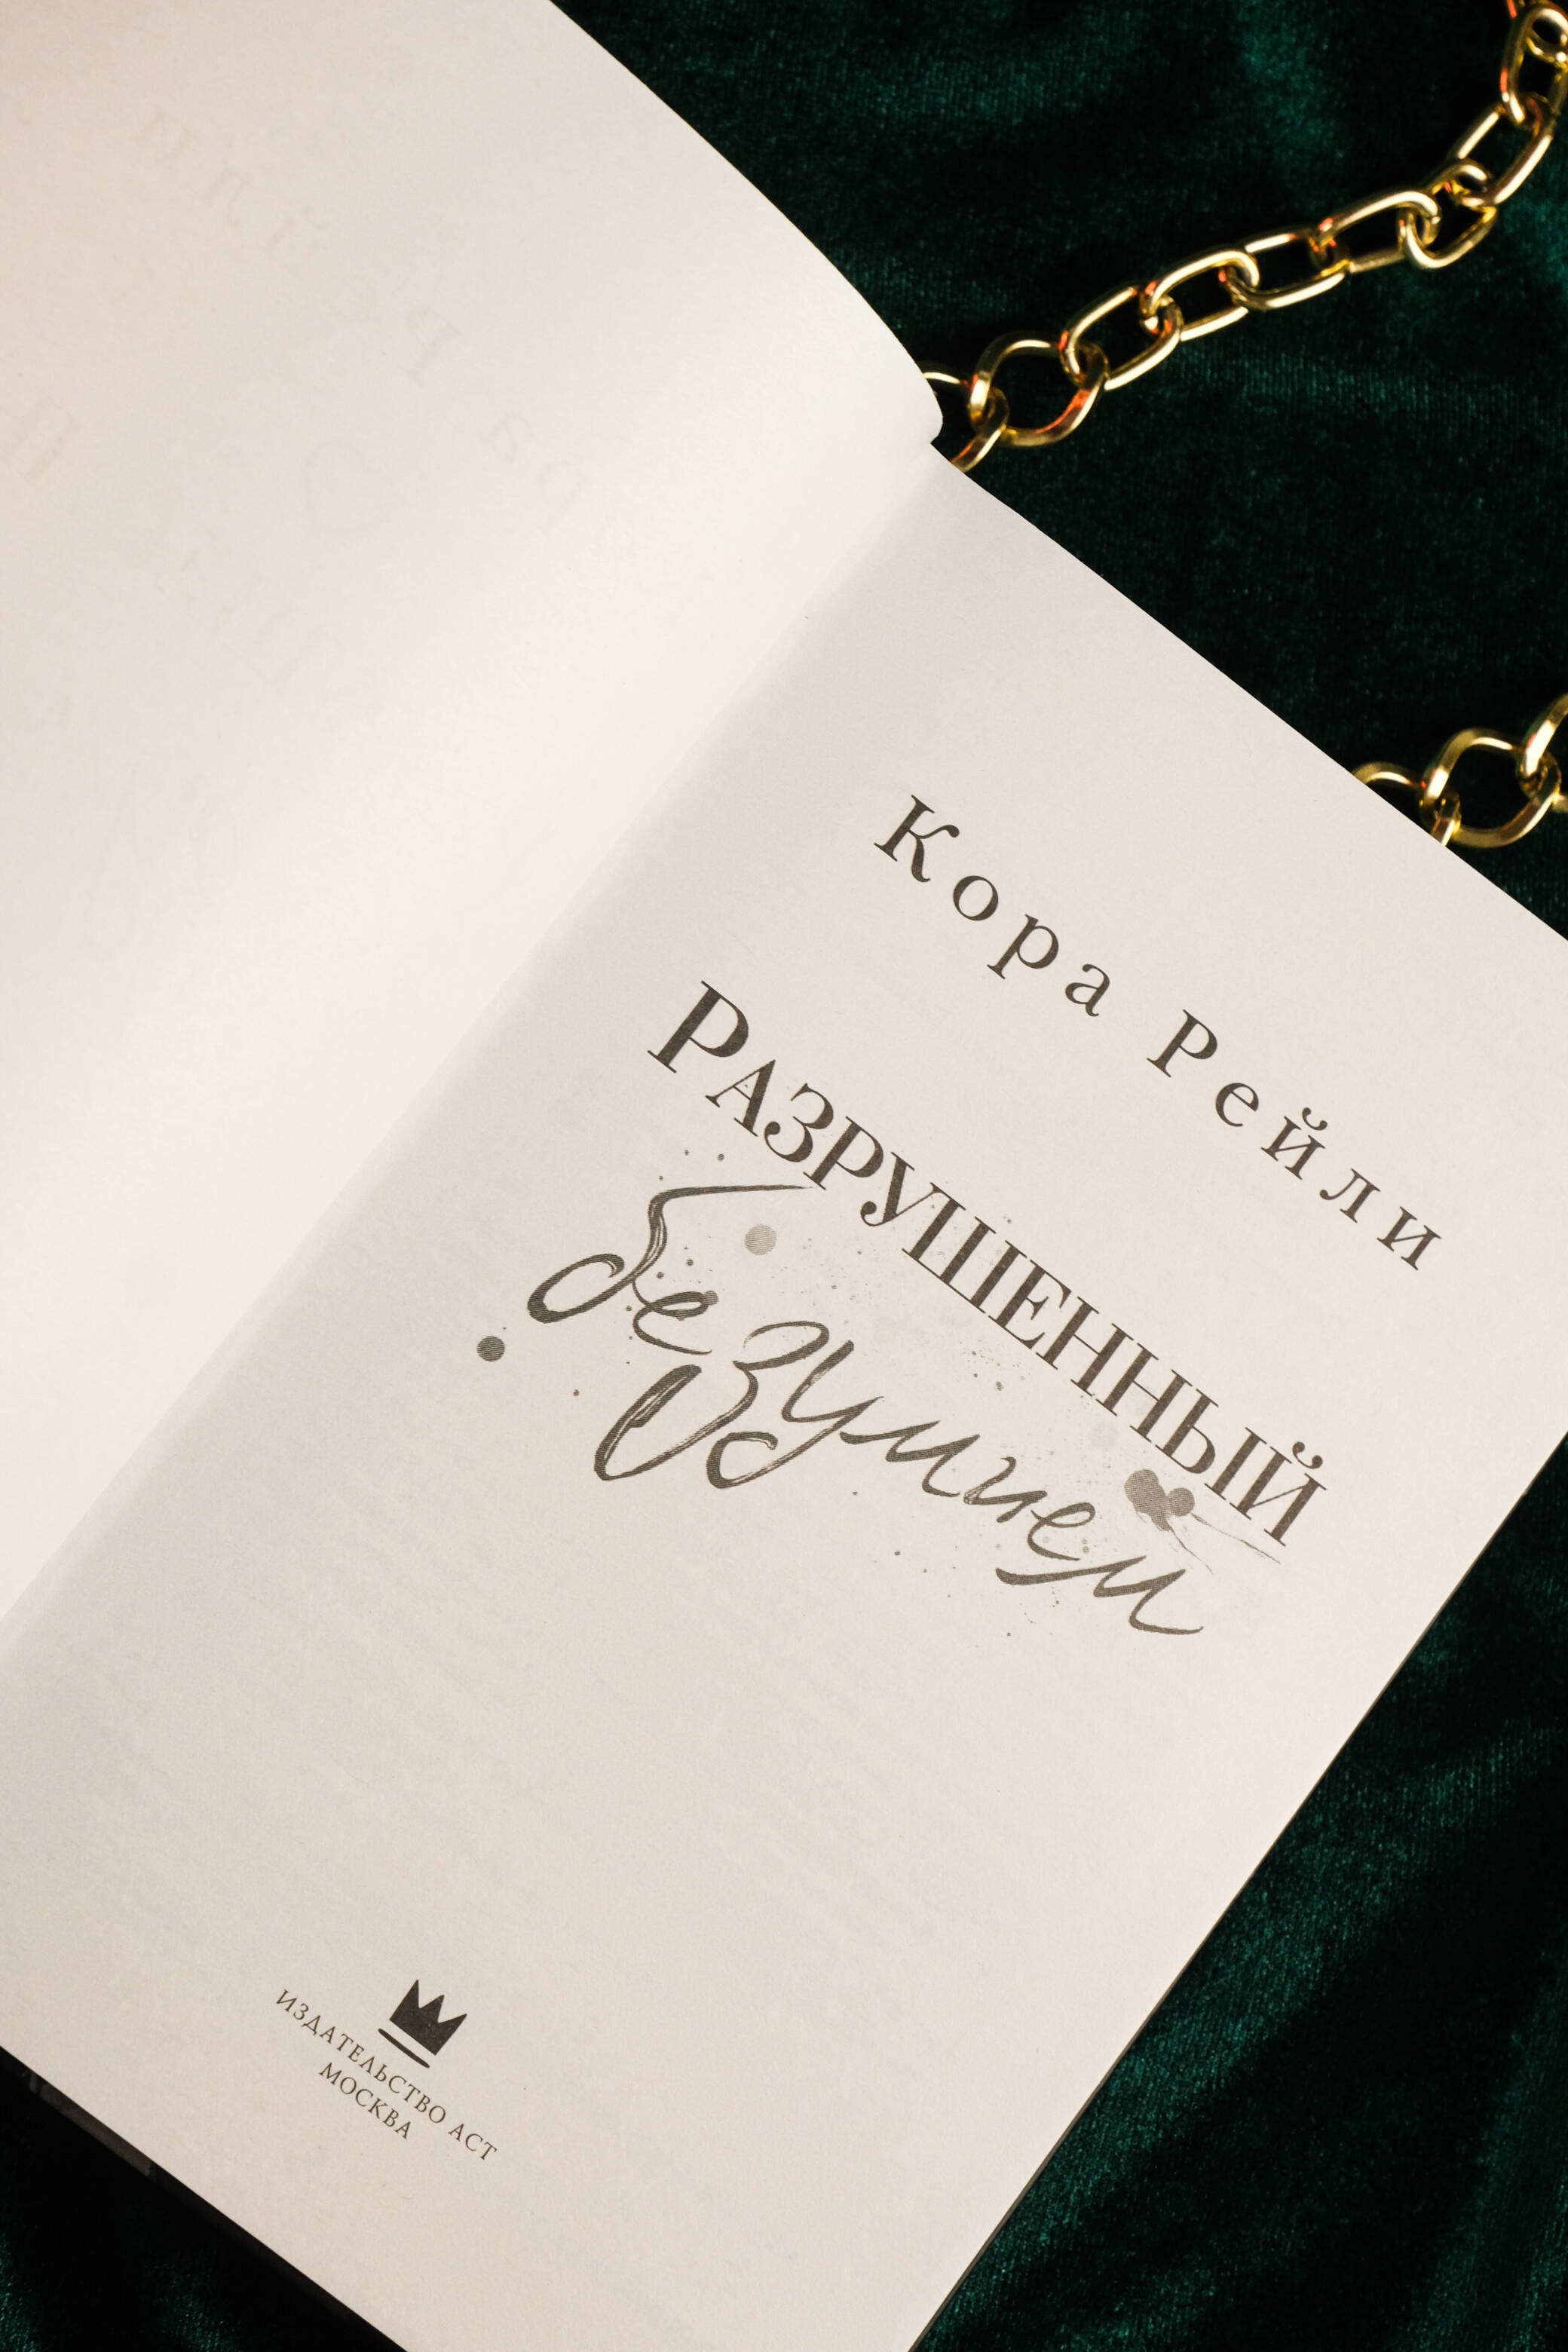 Кора Рейли
РАЗРУШЕННЫЙ
безумием
ИЗДАТЕЛЬСТВО АСТ
МОСКВА